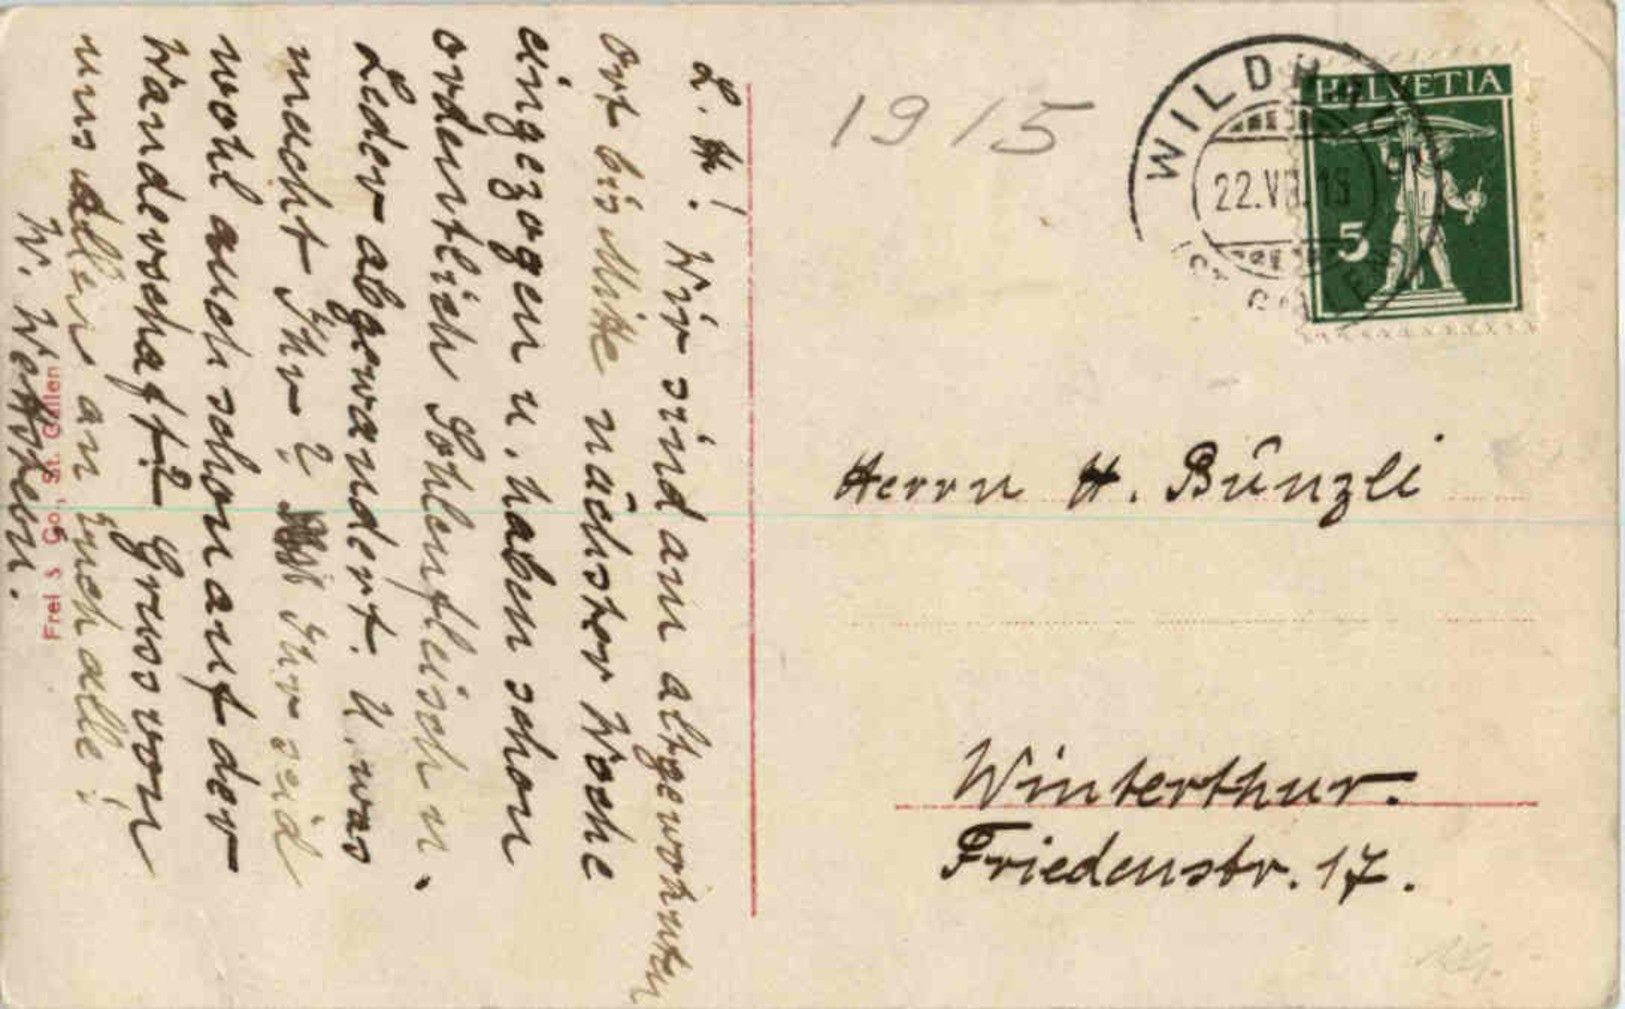 L. H! Wir sind am altgewohnten
Ort bis Mitte nächster Woche
eingezogen u. haben schon
ordentlich Sohlenfleisch u.
Leder abgewandert. U. was
macht Ihr? Ihr seid
wohl auch schon auf der
Wanderschaft? Gruss von
uns allen an Euch alle!
W.
Frei & Co., St. Gallen
1915
WILDHAUS
22.VII.15
HELVETIA
5
Herrn H. Bünzli
Winterthur.
Friedenstr. 17.